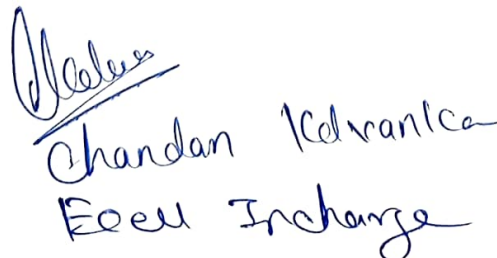 Chandan Kalvanka
Ecell Incharge